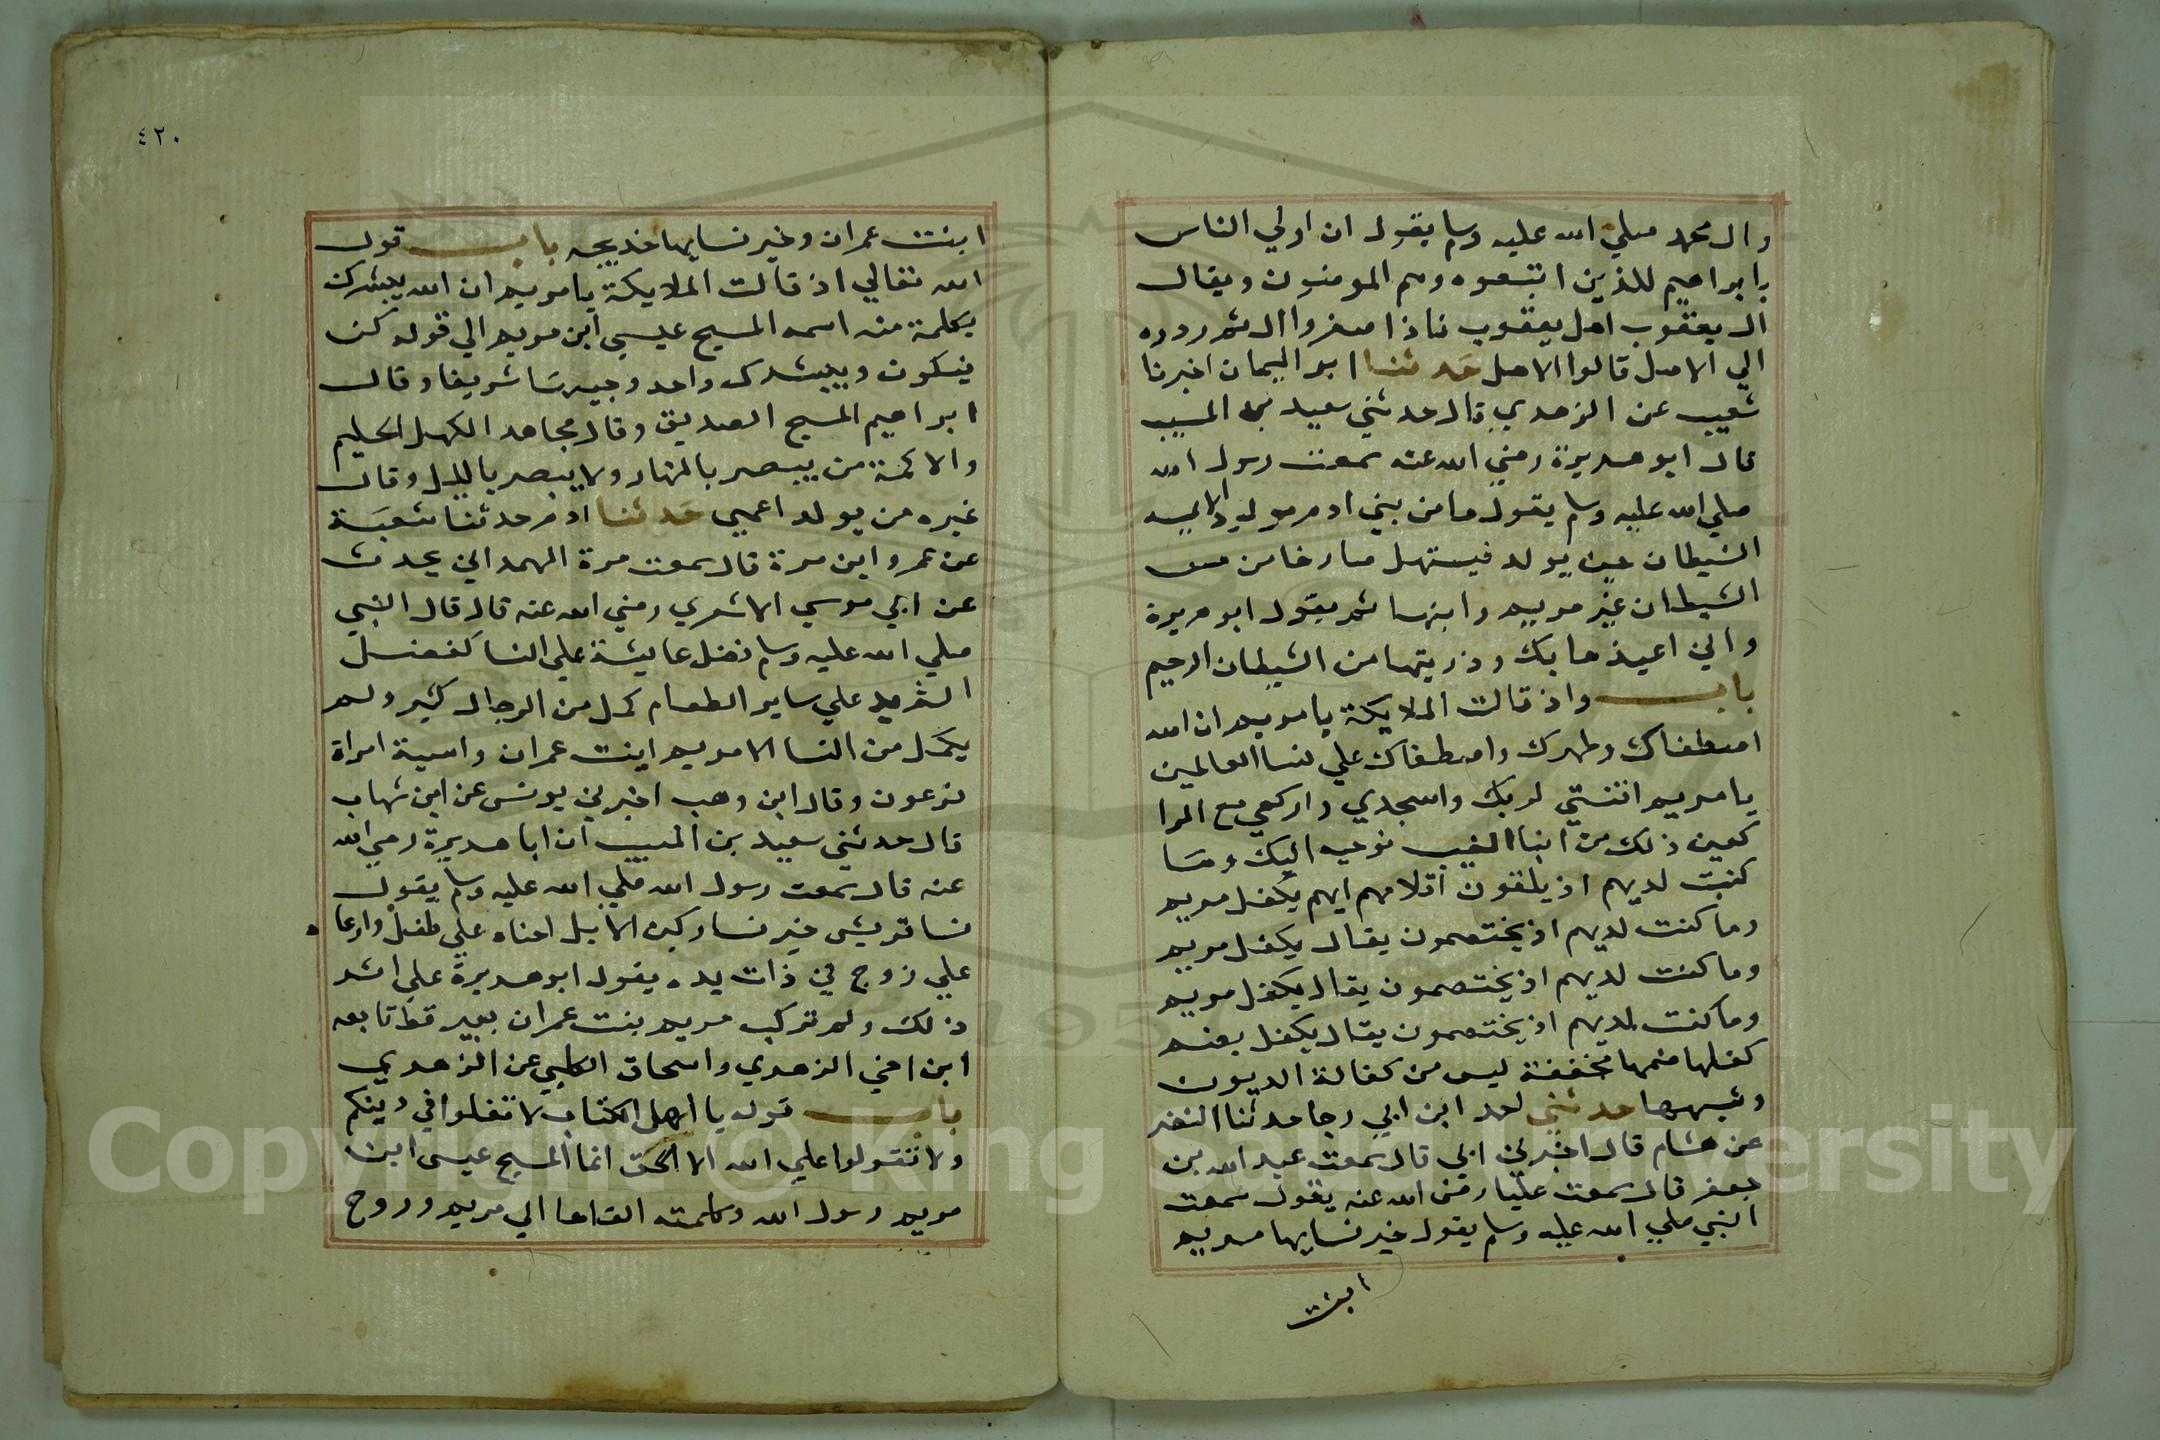 وال محمد صلي الله عليه وسلم يقول ان اولي الناس
بابراهيم للذين اتبعوه وهم المومنون ويقال
ال يعقوب اهل يعقوب فاذا صغروا ال ثم ردوه
الي الاصل قالوا الاهل حدثنا ابو اليمان اخبرنا
شعيب عن الزهري قال حدثني سعيد بن المسيب
قال ابو هريرة رضي الله عنه سمعت رسول الله
صلي الله عليه وسلم يقول ما من بني ادم مولود الا يمسه
الشيطان حين يولد فيستهل صارخا من مس
الشيطان غير مريم وابنها ثم يقول ابو هريرة
واني اعيذها بك وذريتها من الشيطان الرجيم
باب واذ قالت الملايكة يا مريم ان الله
اصطفاك وطهرك واصطفاك علي نسا العالمين
يا مريم اقنتي لربك واسجدي واركعي مع الرا
كعين ذلك من انبا الغيب نوحيه اليك وما
كنت لديهم اذ يلقون اقلامهم ايهم يكفل مريم
وما كنت لديهم اذ يختصمون يقال يكفل مريم
وما كنت لديهم اذ يختصمون يقال يكفل مريم
وما كنت لديهم اذ يختصمون يقال يكفل يضم
كفلها ضمها مخففة ليس من كفالة الديون
وشبهها حدثني احمد ابن ابي رجا حدثنا النضر
عن هشام قال اخبرني ابي قال سمعت عبد الله بن
جعفر قال سمعت عليا رضي الله عنه يقول سمعت
النبي صلي الله عليه وسلم يقول خير نسايها مريم
ابنت
٤٢٠
ابنت عمران وخير نسايها خديجه باب قول
الله تعالي اذ قالت الملايكة يا مريم ان الله يبشرك
بكلمة منه اسمه المسيح عيسي ابن مريم الي قوله كن
فيكون ويبشرك واحد وجيها شريفا وقال
ابراهيم المسيح الصديق وقال مجاهد الكهل الحليم
والاكمة من يبصر بالنهار ولا يبصر بالليل وقال
غيره من يولد اعمي حدثنا ادم حدثنا شعبة
عن عمرو ابن مرة قال سمعت مرة الهمداني يحدث
عن ابي موسي الاشعري رضي الله عنه قال قال النبي
صلي الله عليه وسلم فضل عايشة علي النسا كفضل
الثريد علي ساير الطعام كمل من الرجال كثير ولم
يكمل من النسا الا مريم ابنت عمران واسية امراة
فرعون وقال ابن وهب اخبرني يونس عن ابن شهاب
قال حدثني سعيد بن المسيب ان ابا هريرة رضي الله
عنه قال سمعت رسول الله صلي الله عليه وسلم يقول
نسا قريش خير نسا ركبن الابل احناه علي طفل وارعا
علي زوج في ذات يده يقول ابو هريرة علي اثر
ذلك ولم تركب مريم بنت عمران بعير قط تابعه
ابن اخي الزهري واسحاق الكلبي عن الزهري
باب قوله يا اهل الكتاب لا تغلوا في دينكم
ولا تقولوا علي الله الا الحق انما المسيح عيسي ابن
مريم رسول الله وكلمته القاها الي مريم وروح
Copyright © King Saud University
1957